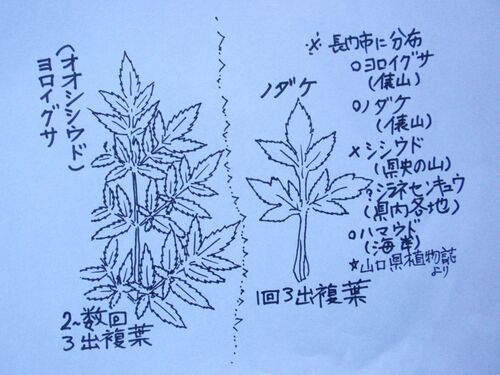 (オオシシウド)
ヨロイグサ
2~数回
3出複葉
ノダケ
1回3出複葉
※ 長門市に分布
○ヨロイグサ
(俵山)
○ノダケ
(俵山)
×シシウド
(県央の山)
?シラネセンキュウ
(県内各地)
○ハマウド
(海岸)
☆山口県植物誌
より